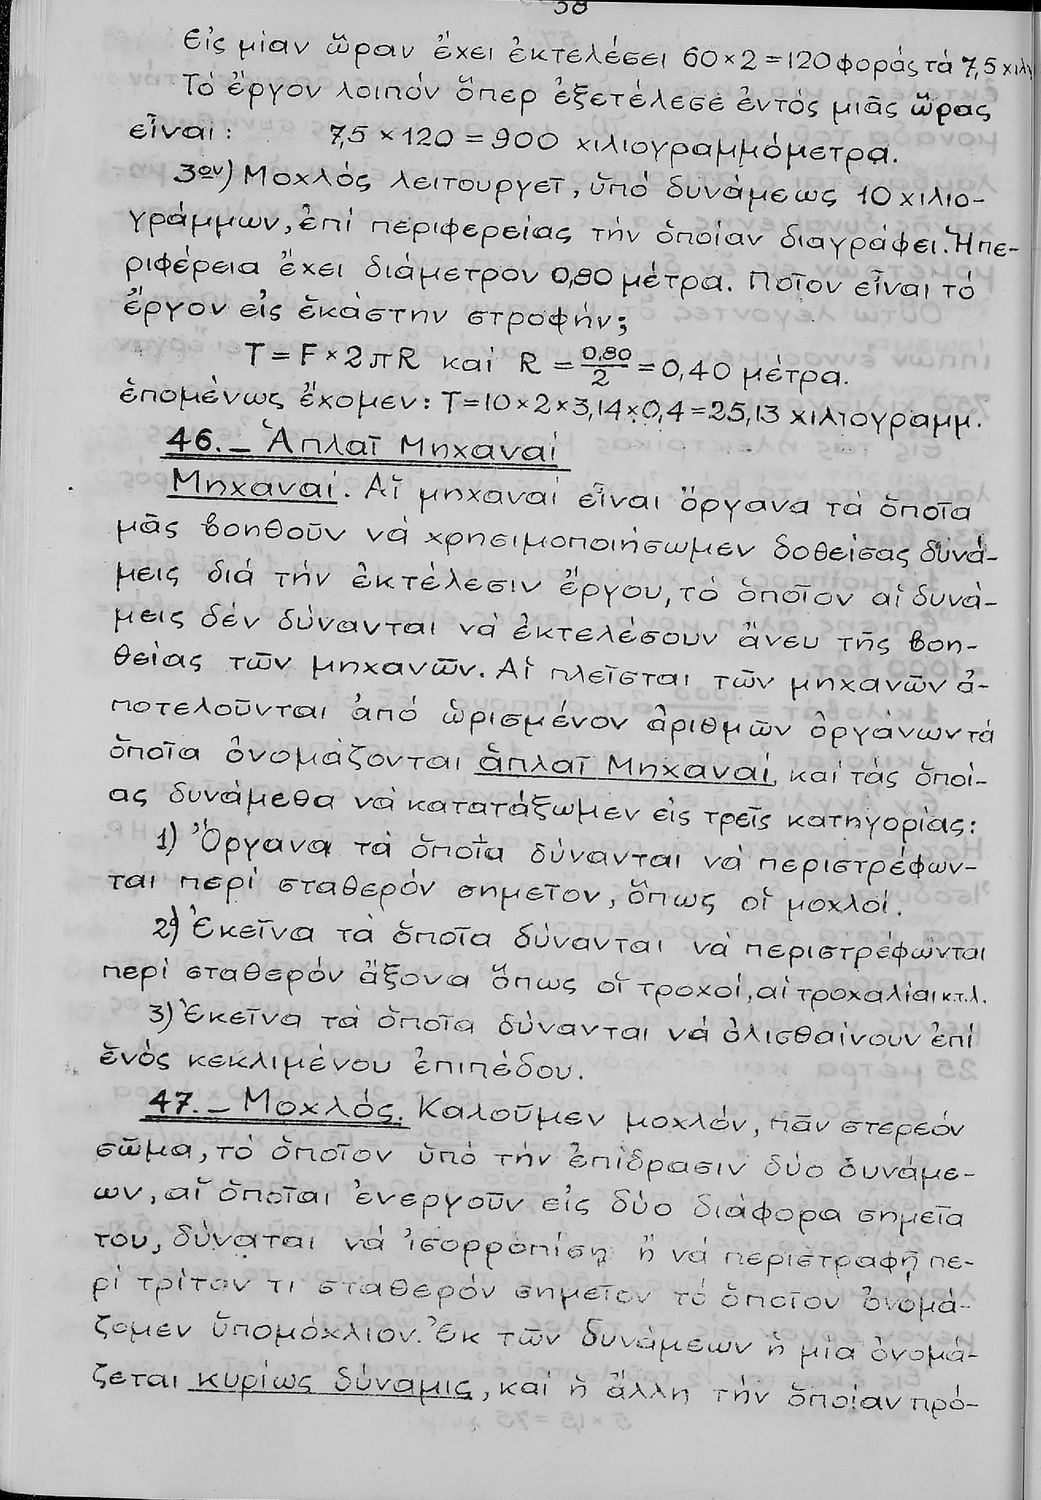 58
Εἰς μίαν ὥραν ἔχει ἐκτελέσει 60×2=120 φοράς τά 7,5 χιλγ
Τό ἔργον λοιπόν ὅπερ ἐξετέλεσε ἐντός μιᾶς ὥρας
εἶναι: 7,5 × 120 = 900 χιλιογραμμόμετρα.
3ον) Μοχλός λειτουργεῖ, ὑπό δυνάμεως 10 χιλιο-
γράμμων, ἐπί περιφερείας τήν ὁποίαν διαγράφει. Ἡ πε-
ριφέρεια ἔχει διάμετρον 0,80 μέτρα. Ποῖον εἶναι τό
ἔργον εἰς ἑκάστην στροφήν;
T = F × 2πR καί R = 0,80/2 = 0,40 μέτρα.
ἑπομένως ἔχομεν: T=10×2×3,14×0,4=25,13 χιλιογραμμ.
46.– Ἁπλαῖ Μηχαναί
Μηχαναί. Αἵ μηχαναί εἶναι ὄργανα τά ὁποῖα
μᾶς βοηθοῦν νά χρησιμοποιήσωμεν δοθείσας δυνά-
μεις διά τήν ἐκτέλεσιν ἔργου, τό ὁποῖον αἱ δυνά-
μεις δέν δύνανται νά ἐκτελέσουν ἄνευ τῆς βοη-
θείας τῶν μηχανῶν. Αἱ πλεῖσται τῶν μηχανῶν ἀ-
ποτελοῦνται ἀπό ὡρισμένον ἀριθμῶν ὀργάνων τά
ὁποῖα ὀνομάζονται ἁπλαῖ Μηχαναί, καί τάς ὁποί-
ας δυνάμεθα νά κατατάξωμεν εἰς τρεῖς κατηγορίας:
1) Ὄργανα τά ὁποῖα δύνανται νά περιστρέφων-
ται περί σταθερόν σημεῖον, ὅπως οἵ μοχλοί.
2) Ἐκεῖνα τά ὁποῖα δύνανται νά περιστρέφωνται
περί σταθερόν ἄξονα ὅπως οἵ τροχοί, αἱ τροχαλίαι κ.τ.λ.
3) Ἐκεῖνα τά ὁποῖα δύνανται νά ὀλισθαίνουν ἐπί
ἑνός κεκλιμένου ἐπιπέδου.
47.– Μοχλός. Καλοῦμεν μοχλόν, πᾶν στερεόν
σῶμα, τό ὁποῖον ὑπό τήν ἐπίδρασιν δύο δυνάμε-
ων, αἵ ὁποῖαι ἐνεργοῦν εἰς δύο διάφορα σημεῖα
του, δύναται νά ἰσορροπίση ἤ νά περιστραφῆ πε-
ρί τρίτον τι σταθερόν σημεῖον τό ὁποῖον ὀνομά-
ζομεν ὑπομόχλιον. Ἐκ τῶν δυνάμεων ἡ μία ὀνομά-
ζεται κυρίως δύναμις, καί ἡ ἄλλη τήν ὁποίαν πρό-